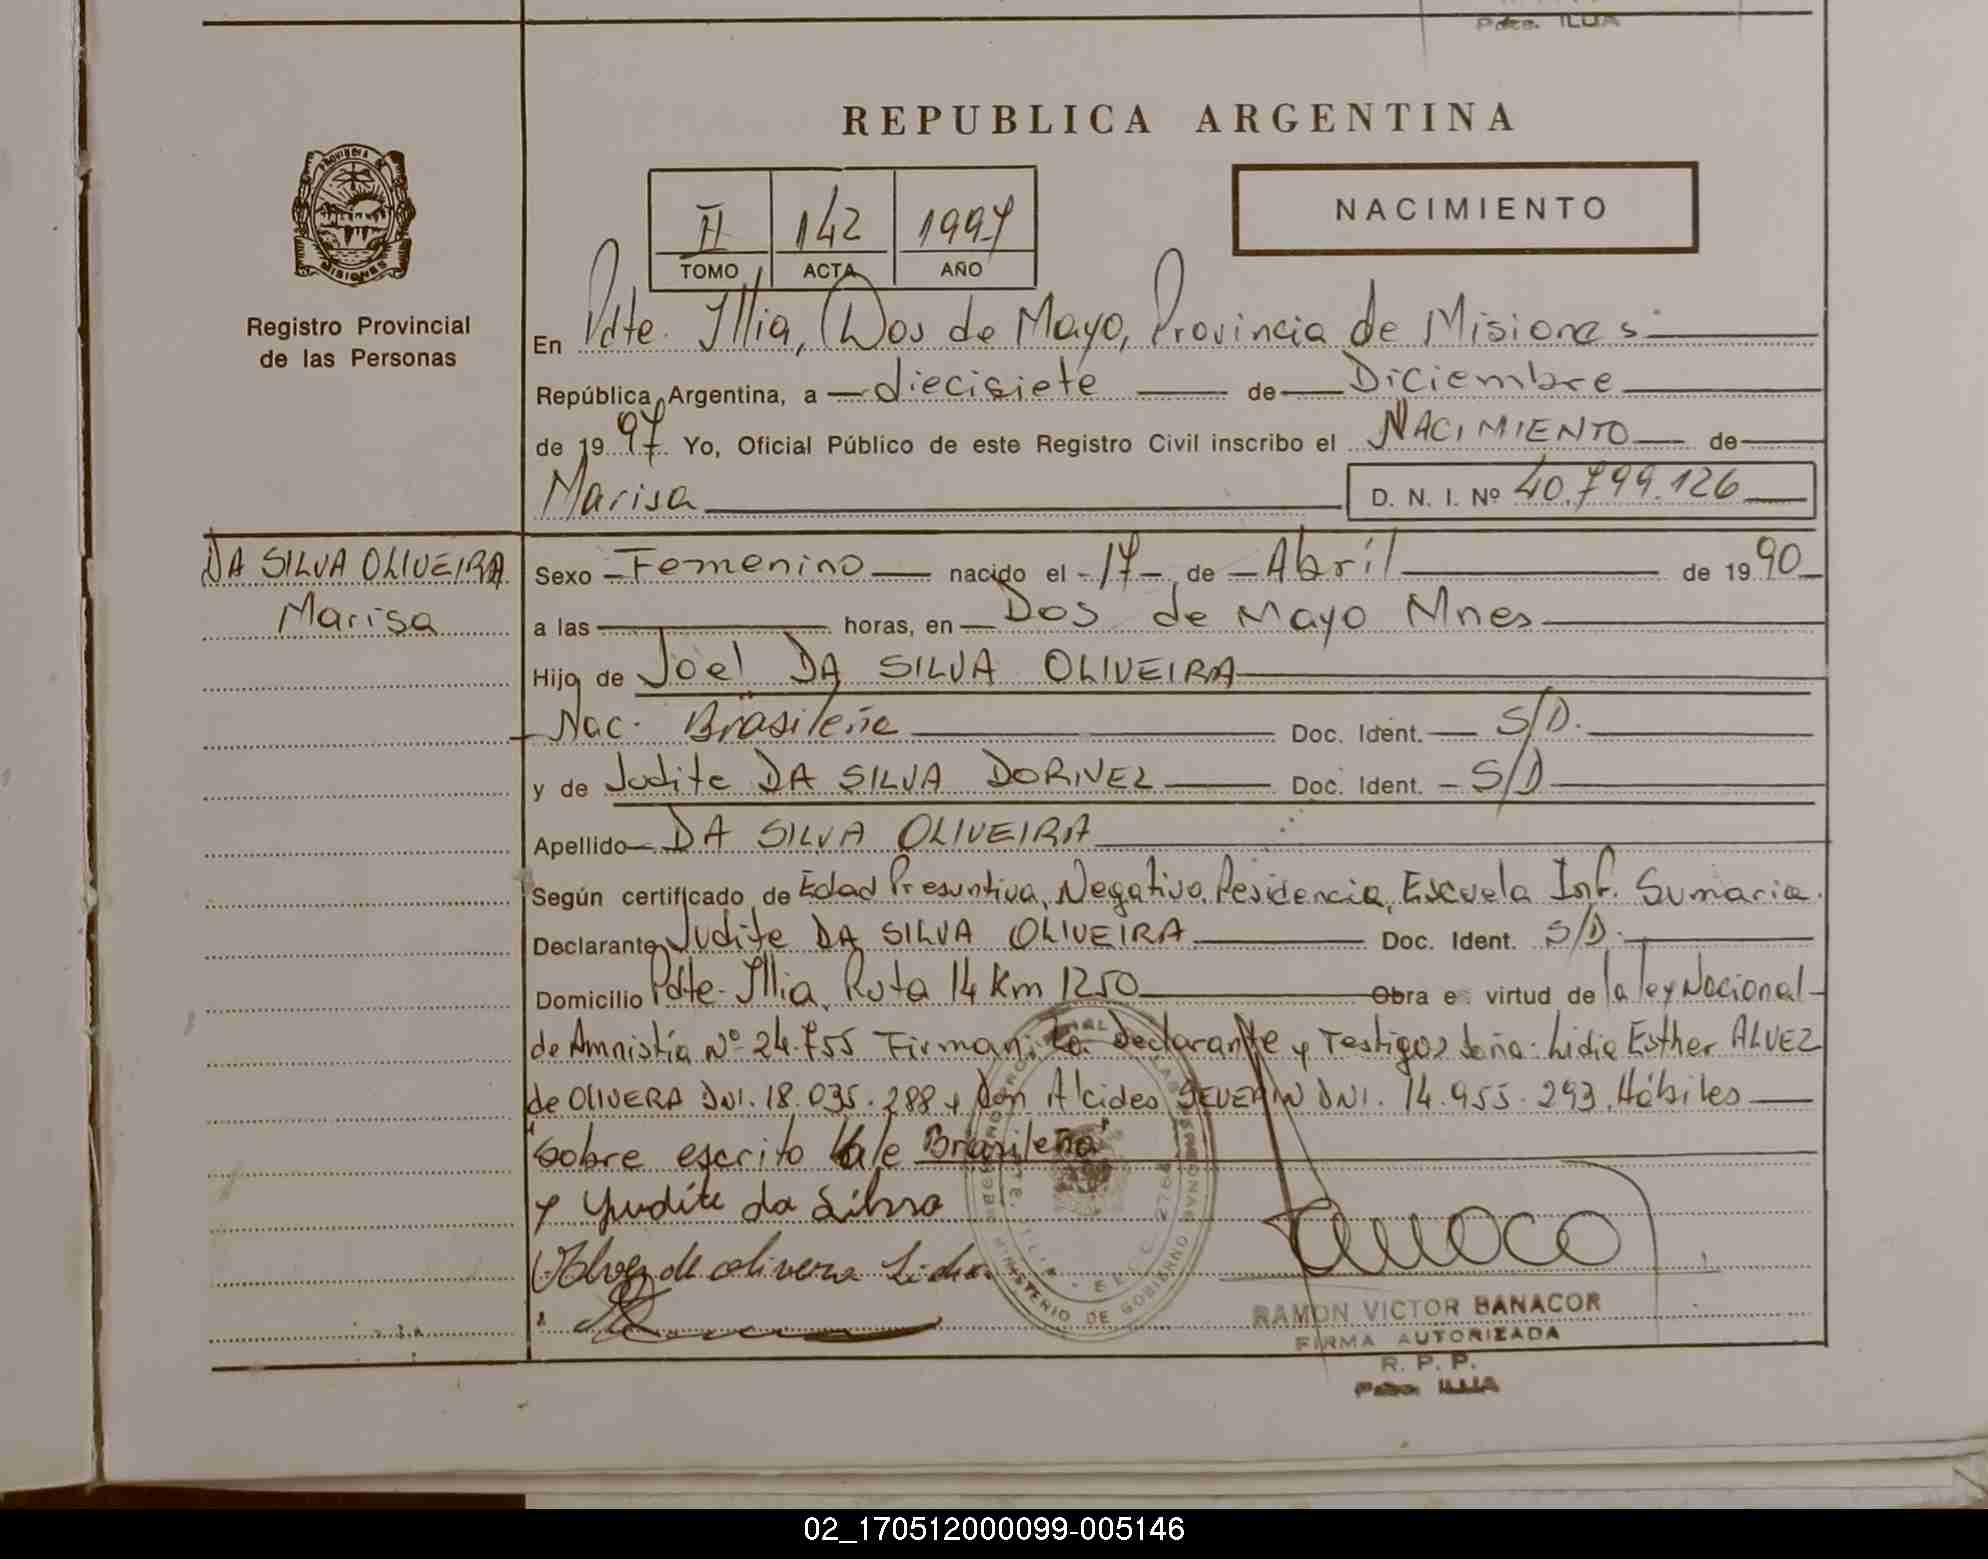 Pdte. ILLIA
REPUBLICA ARGENTINA
PROVINCIA DE
MISIONES
Registro Provincial
de las Personas
II 142 1997
TOMO ACTA AÑO
NACIMIENTO
En Pdte. Illia, Dos de Mayo, Provincia de Misiones
República Argentina, a diecisiete de Diciembre
de 1997 Yo, Oficial Público de este Registro Civil inscribo el NACIMIENTO de
Marisa D. N. I. Nº 40.799.126
DA SILVA OLIVEIRA
Marisa
Sexo Femenino nacido el 17 de Abríl de 1990
a las horas, en Dos de Mayo Mnes
Hijo de Joel DA SILVA OLIVEIRA
Nac. Brasileña Doc. Ident. S/D.
y de Judite DA SILVA DORNEZ Doc. Ident. S/D
Apellido DA SILVA OLIVEIRA
Según certificado de Edad Presuntiva, Negativo, Residencia, Escuela Inf. Sumaria.
Declarante Judite DA SILVA OLIVEIRA Doc. Ident. S/D.
Domicilio Pdte. Illia, Ruta 14 Km 1250 Obra e virtud de la Ley Nacional
de Amnistía Nº 24.755 Firman: La Declarante y Testigos Doña: Lidia Esther ALVEZ
de OLIVERA DNI. 18.035.288 y Don Alcides SEVERIN DNI. 14.955.293 Hábiles
"Sobre escrito Vale Brasileña"
y Yudite da Silva
Alvez de olivera Lidia
MINISTERIO DE GOBIERNO
RAMON VICTOR BANACOR
FIRMA AUTORIZADA
R. P. P.
Pdte. ILLIA
02_170512000099-005146